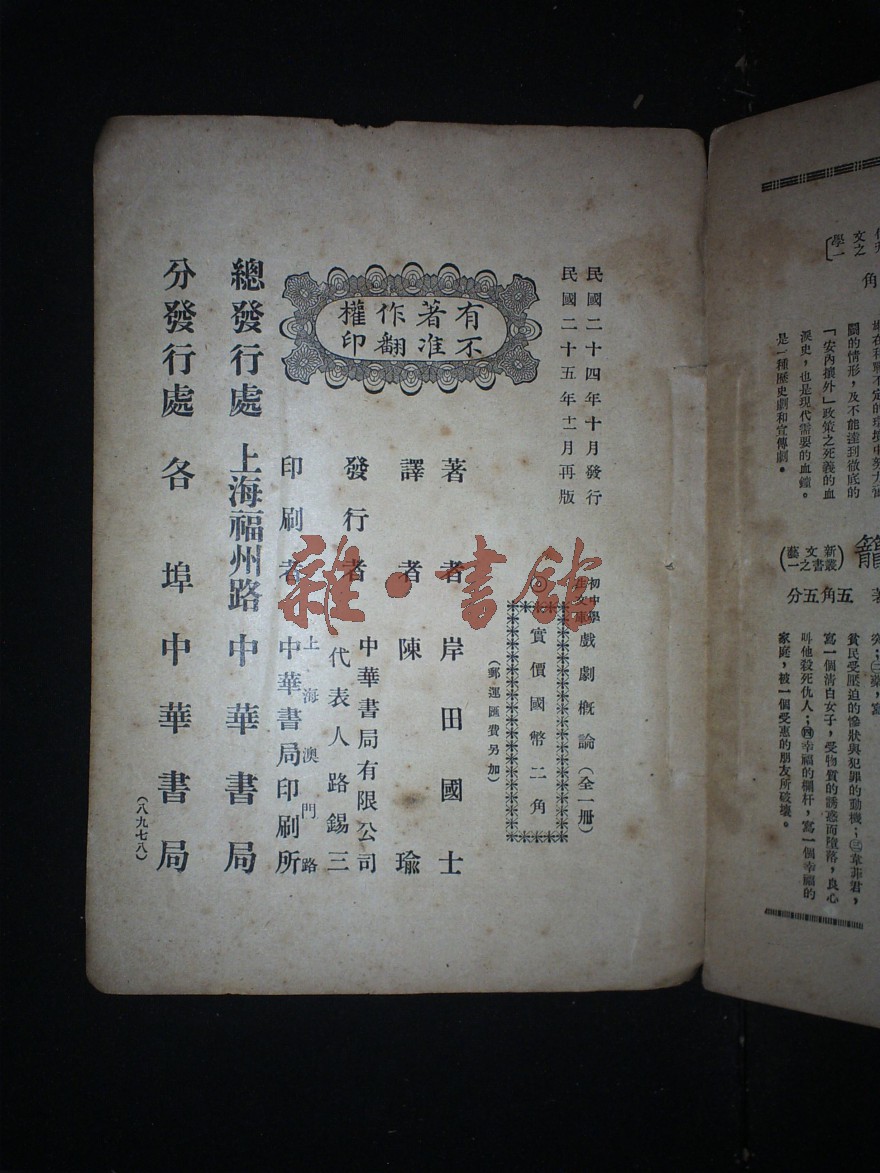 民國二十四年十月發行
民國二十五年十二月再版
初中學生文庫
戲劇概論（全一冊）
實價國幣二角
（郵運匯費另加）
有著作權
不准翻印
著者 岸田國士
譯者 陳瑜
發行者 中華書局有限公司
代表人路錫三
印刷者 上海澳門路
中華書局印刷所
總發行處 上海福州路 中華書局
分發行處 各埠中華書局
（八九七八）
雜·書館
文之
學一
角
闘的情形，及不能達到徹底的
「安內攘外」政策之死義的血
淚史，也是現代需要的血鐘。
是一種歷史劇和宣傳劇。
籠
（新文藝叢書之一）
著 五角五分
貧民受壓迫的慘狀與犯罪的動機；㊂韋菲君，
寫一個清白女子，受物質的誘惑而墮落，良心
叫他殺死仇人；㊃幸福的欄杆，寫一個幸福的
家庭，被一個受惠的朋友所破壞。